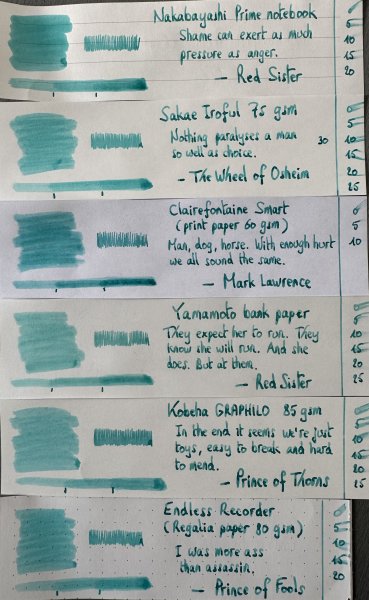 Nakabayashi Prime notebook
Shame can exert as much
pressure as anger.
— Red Sister
0
5
10
15
20
Sakae Iroful 75 gsm
Nothing paralyses a man
so well as choice.
— The Wheel of Osheim
30
0
5
10
15
20
25
Clairefontaine Smart
(print paper 60 gsm)
Man, dog, horse. With enough hurt
we all sound the same.
— Mark Lawrence
0
5
10
Yamamoto bank paper
They expect her to run. They
know she will run. And she
does. But at them.
— Red Sister
5
10
15
20
25
Kobeha GRAPHILO 85 gsm
In the end it seems we're just
toys, easy to break and hard
to mend.
— Prince of Thorns
5
10
15
20
25
Endless Recorder
(Regalia paper 80 gsm)
I was more ass
than assassin.
— Prince of Fools
10
15
20